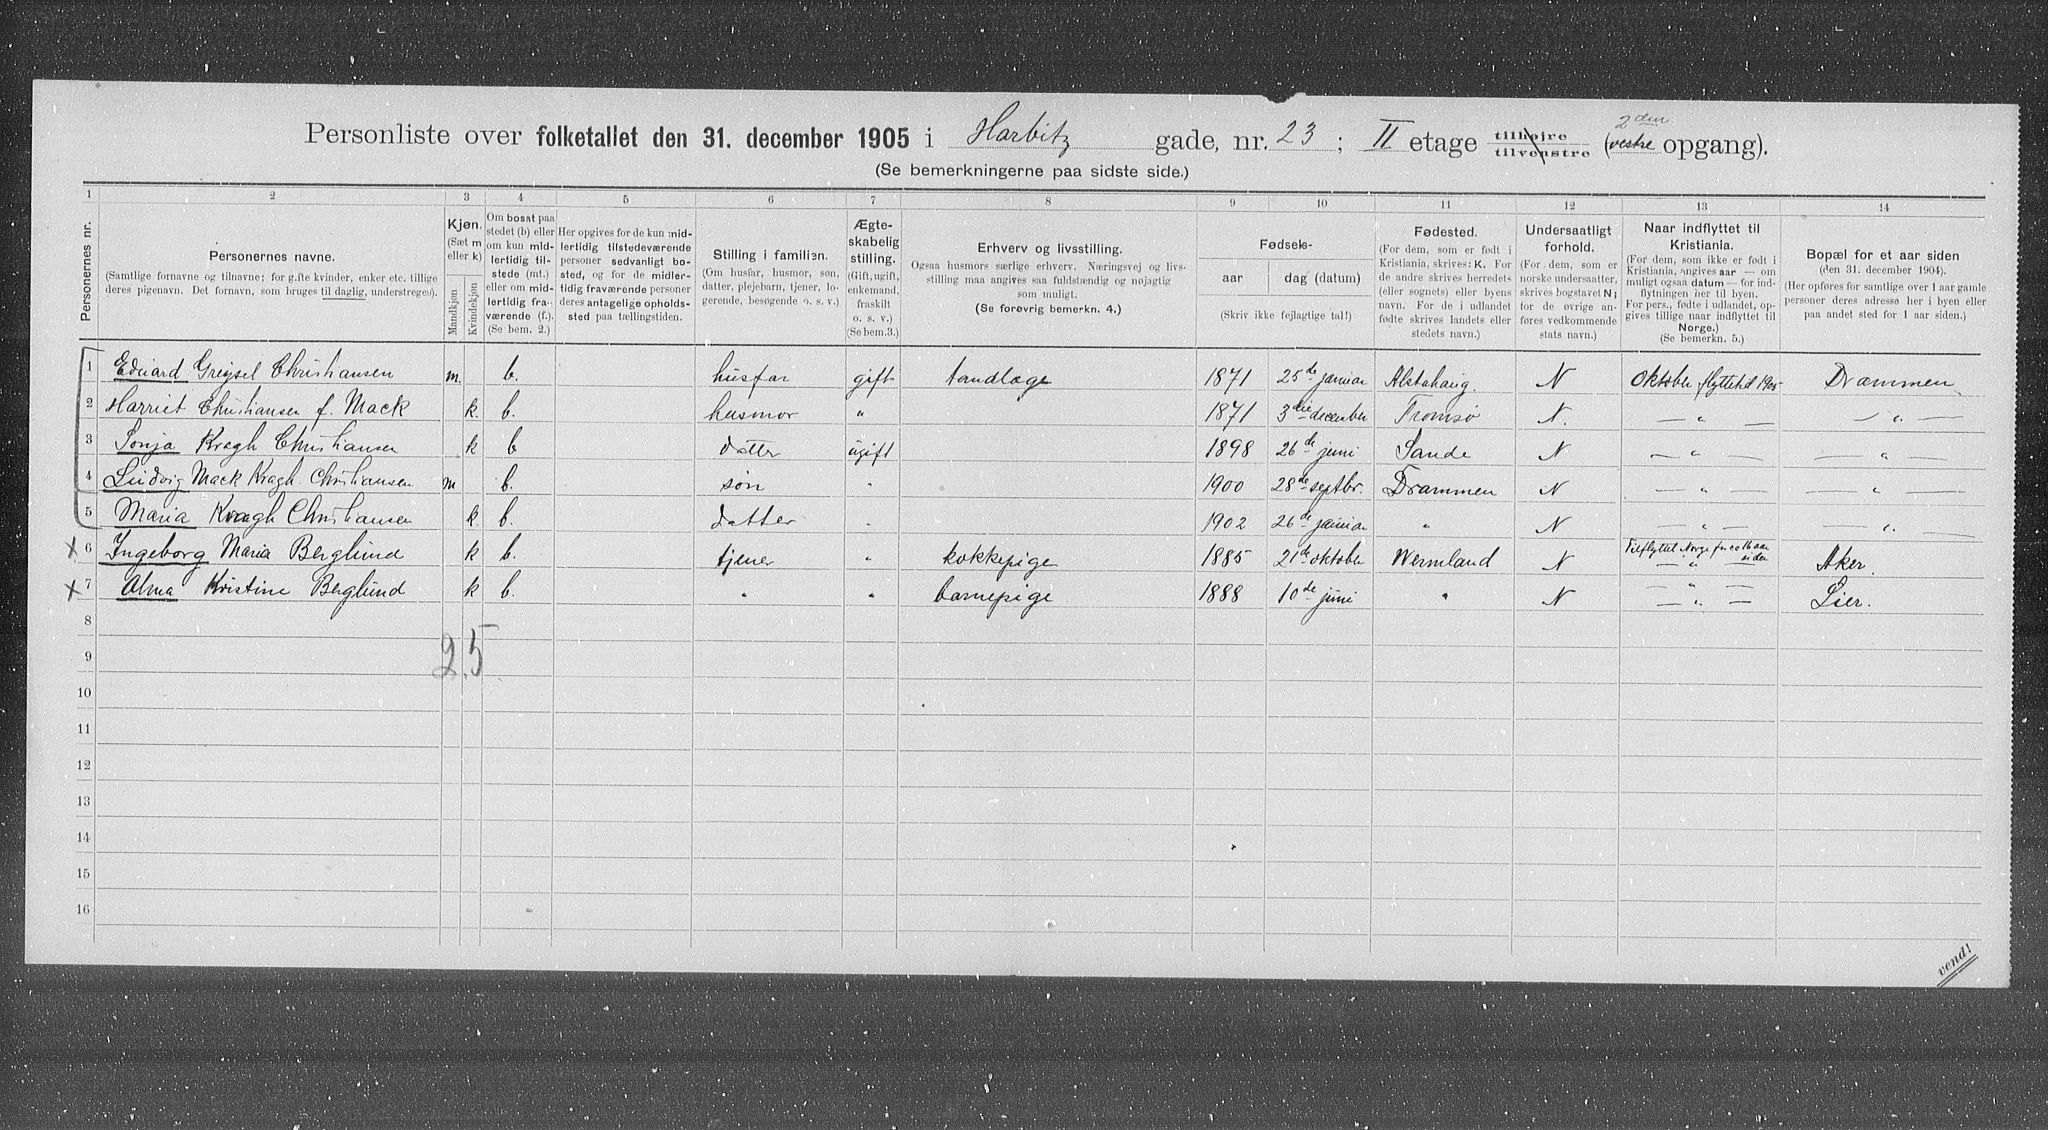 Personliste over folketallet den 31. december 1905 i Harbitz gade, nr. 23; II etage tilhøjre tilvenstre (2den vestre opgang).
(Se bemerkningerne paa sidste side.)
1 2 3 4 5 6 7 8 9 10 11 12 13 14
Personernes nr.
Personernes navne.
(Samtlige fornavne og tilnavne; for gifte kvinder, enker etc. tillige deres pigenavn. Det fornavn, som bruges til daglig, understreges).
Kjøn.
(Sæt m eller k)
Mandkjøn
Kvindekjøn
Om bosat paa stedet (b) eller om kun midlertidig tilstede (mt.) eller om midlertidig fraværende (f.). (Se bem. 2.)
Her opgives for de kun midlertidig tilstedeværende personer sedvanligt bosted, og for de midlertidig fraværende personer deres antagelige opholdssted paa tællingstiden.
Stilling i familien.
(Om husfar, husmor, søn, datter, plejebarn, tjener, logerende, besøgende o. s. v.)
Ægteskabelig stilling.
(Gift, ugift, enkemand, fraskilt o. s. v.) (Se bem. 3.)
Erhverv og livsstilling.
Ogsaa husmors særlige erhverv. Næringsvej og livsstilling maa angives saa fuldstændig og nøjagtig som muligt.
(Se forøvrig bemerkn. 4.)
Fødsels-
aar
dag (datum)
(Skriv ikke fejlagtige tal!)
Fødested.
(For dem, som er født i Kristiania, skrives: K. For de andre skrives herredets (eller sognets) eller byens navn. For de i udlandet fødte skrives landets eller stedets navn.)
Undersaatligt forhold.
(For dem, som er norske undersaatter, skrives bogstavet N; for de øvrige anføres vedkommende stats navn.)
Naar indflyttet til Kristiania.
(For dem, som ikke er født i Kristiania, angives aar — om muligt ogsaa datum — for indflytningen her til byen. For pers., fødte i udlandet, opgives tillige naar indflyttet til Norge.)
(Se bemerkn. 5.)
Bopæl for et aar siden
(den 31. december 1904.)
(Her opføres for samtlige over 1 aar gamle personer deres adresse her i byen eller paa andet sted for 1 aar siden.)
1 Eduard Greysel Christiansen m. b. husfar gift tandlæge 1871 25de januar Alstahaug. N Oktober flyttetid 1905 Drammen
2 Harriet Christiansen f. Mack k. b. husmor " 1871 3die december Tromsø N. — " — — " —
3 Sonja Kragh Christiansen k b datter ugift 1898 26de juni Sande N — " — — " —
4 Ludvig Mack Kragh Christiansen m b. søn " 1900 28de septbr. Drammen N — " — — " —
5 Maria Kragh Christiansen k. b. datter " 1902 26de januar " N — " — — " —
x 6 Ingeborg Maria Berglund k b. tjener " kokkepige 1885 21de oktober Wermland N Tilflyttet Norge for ca 1b aar siden — " — Aker.
x 7 Alma Kristine Berglund k b. " " barnepige 1888 10de juni " N — " — Lier.
8
2.5
9
10
11
12
13
14
15
16
vend!